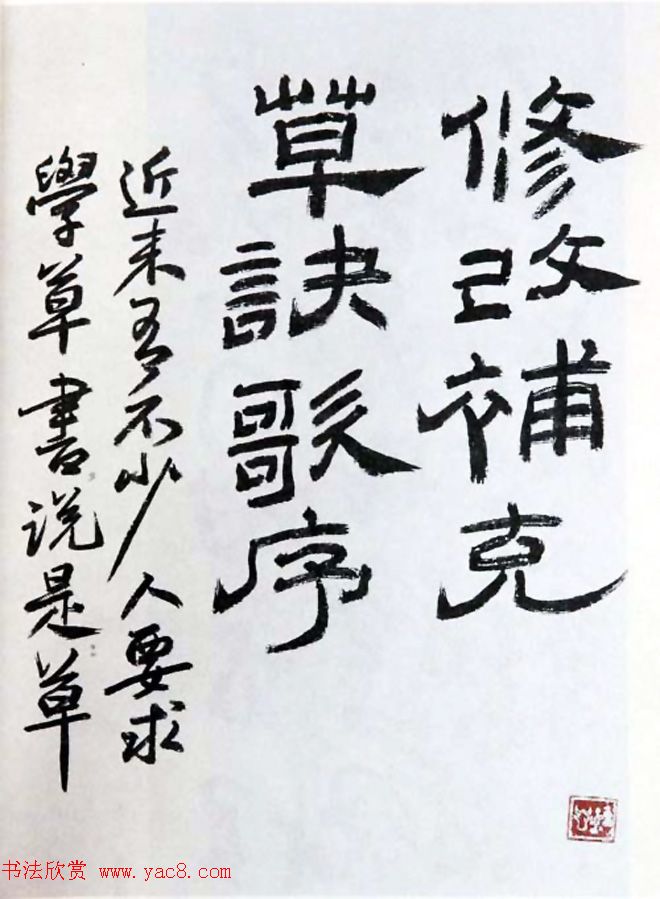 修改補克
草訣歌序
近来有不少人要求
學草書说是草
书法欣赏 www.yac8.com